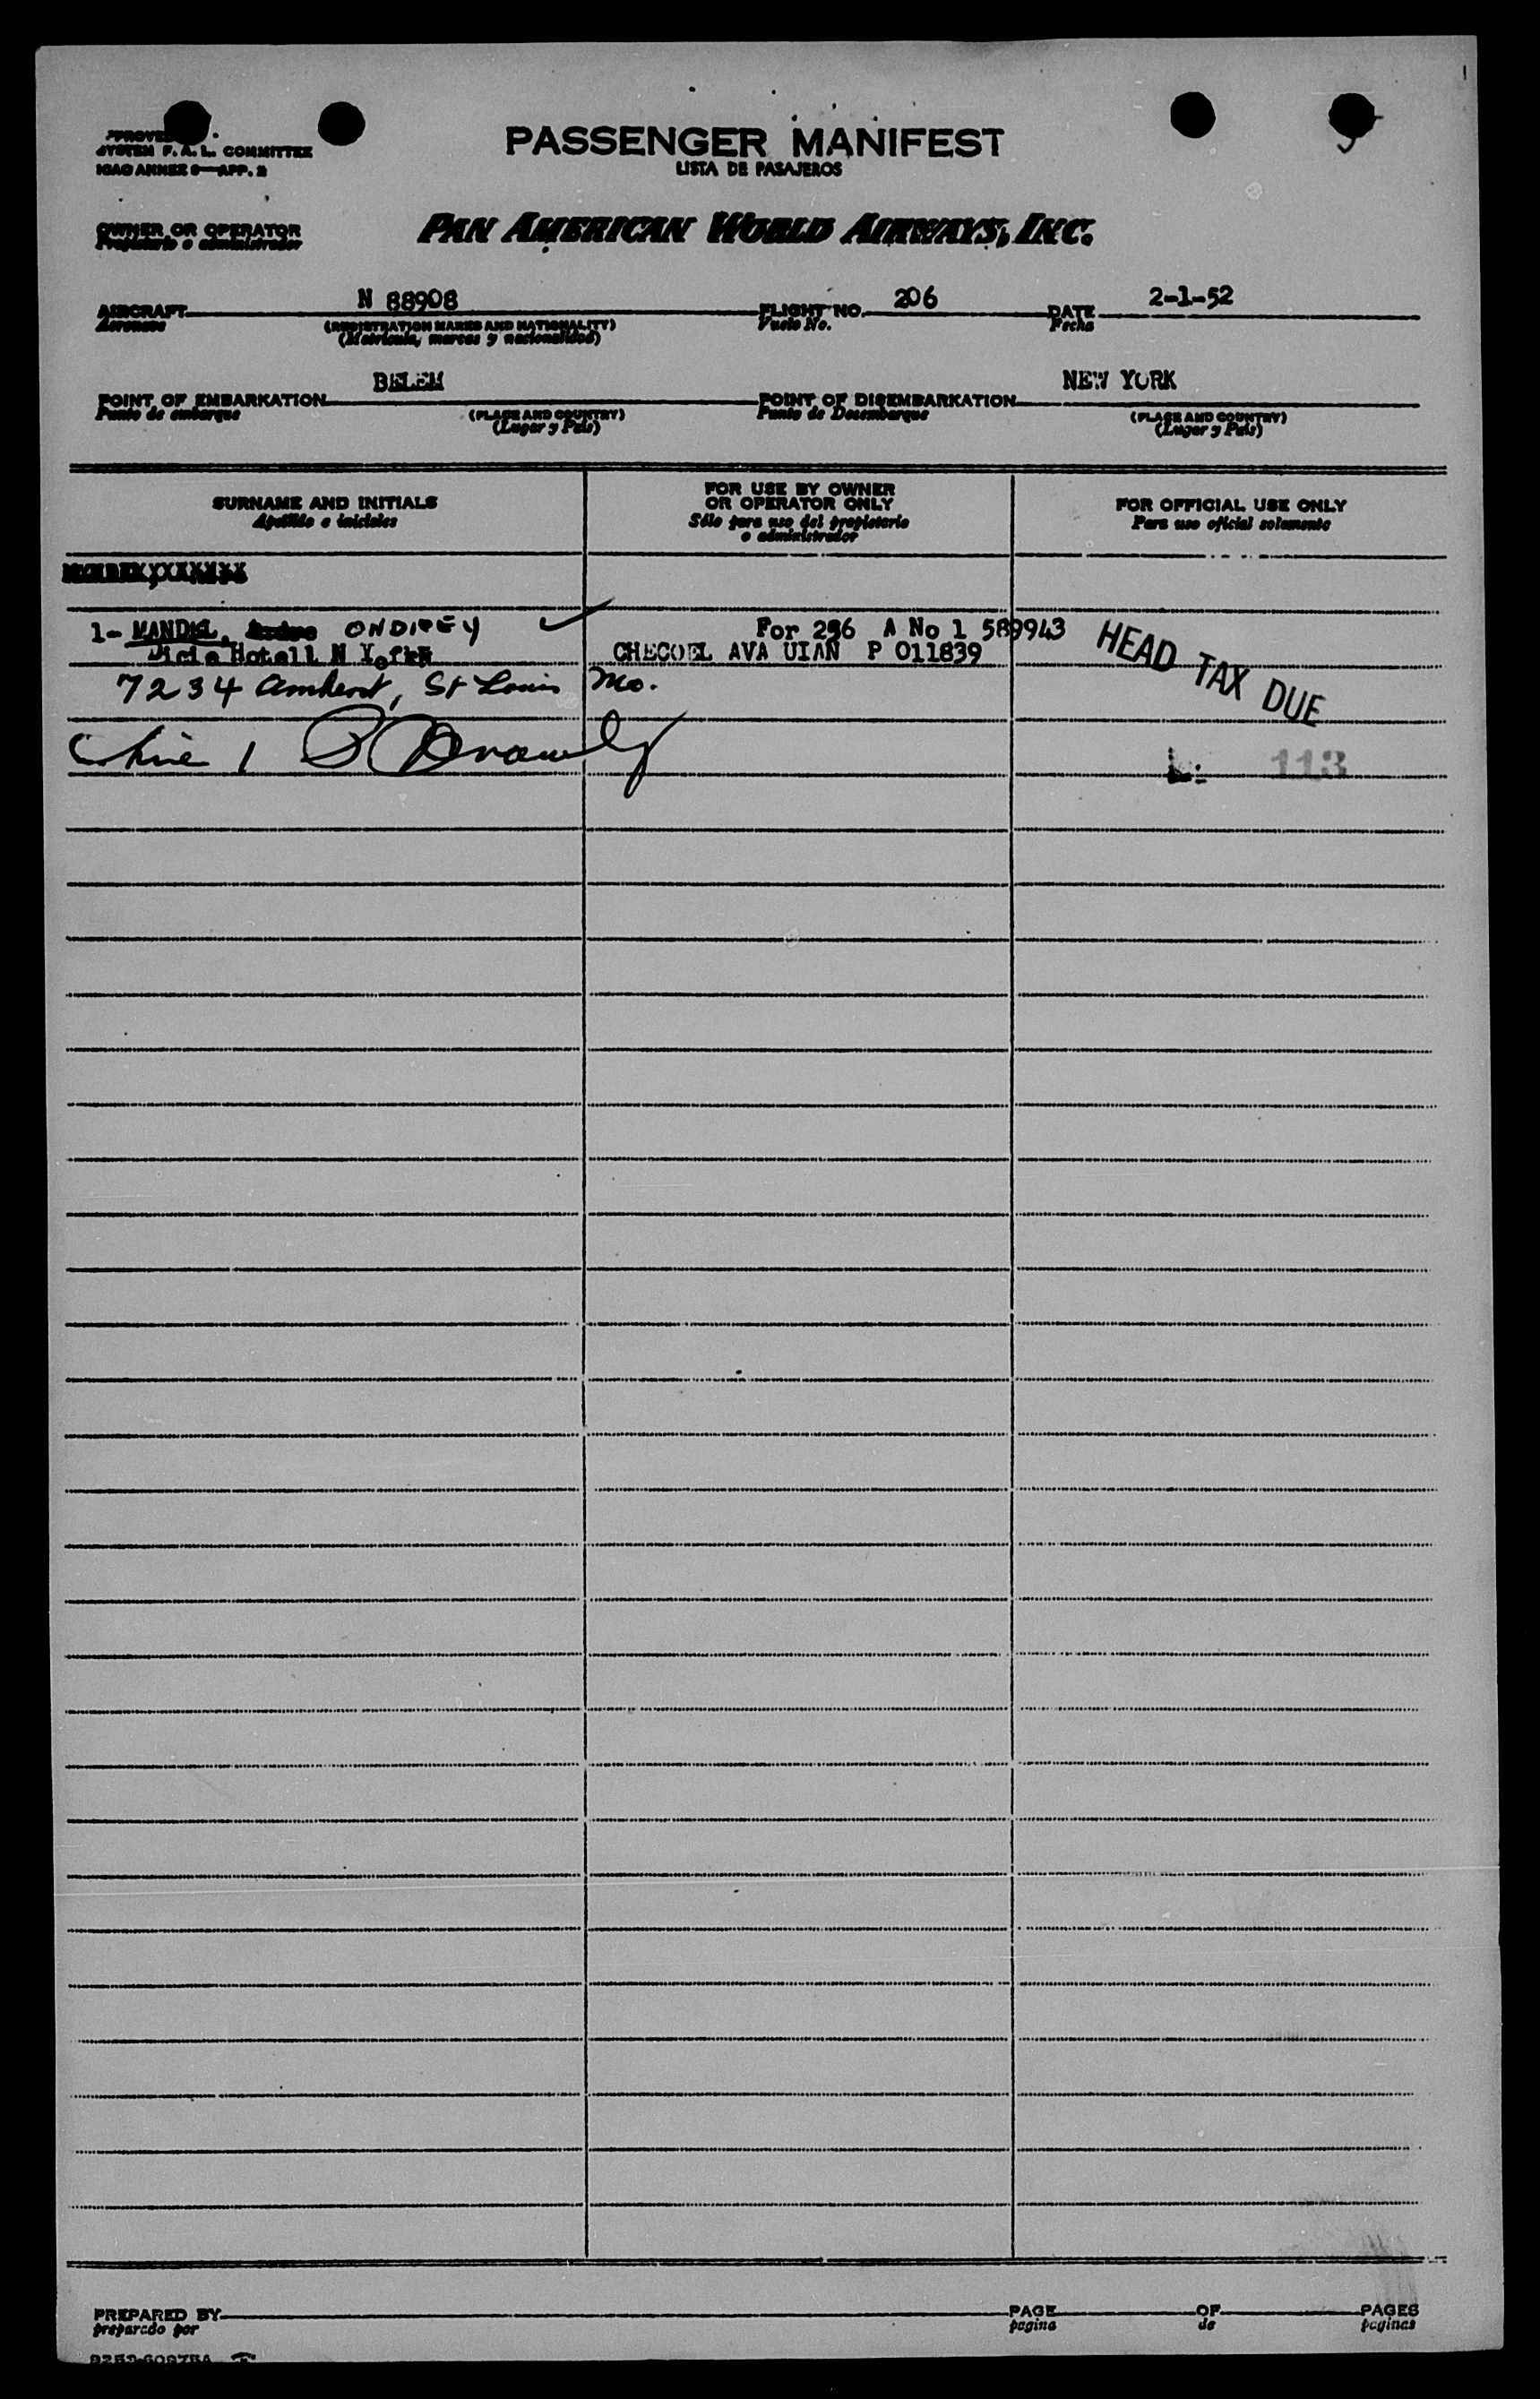 PASSENGER MANIFEST
LISTA DE PASAJEROS
SYSTEM F. A. L. COMMITTEE
ICAO ANNEX 9—APP. 2
OWNER OR OPERATOR
Propietario o administrador
PAN AMERICAN WORLD AIRWAYS, INC.
AIRCRAFT N 88908 FLIGHT NO. 206 DATE 2-1-52
Aeronave (REGISTRATION MARKS AND NATIONALITY) Vuelo No. Fecha
(Matricula, marcas y nacionalidad)
POINT OF EMBARKATION BELEM POINT OF DISEMBARKATION NEW YORK
Punto de embarque (PLACE AND COUNTRY) Punto de Desembarque (PLACE AND COUNTRY)
(Lugar y País) (Lugar y País)
SURNAME AND INITIALS
Apellido e iniciales
FOR USE BY OWNER
OR OPERATOR ONLY
Sólo para uso del propietario
o administrador
FOR OFFICIAL USE ONLY
Para uso oficial solamente
1- MANDEL, ONDREY For 256 A No 1 589943
Hotell N York CHECOEL AVA UIAN P 011839
HEAD TAX DUE
7234 Amherst, St Louis Mo.
1
113
PREPARED BY PAGE OF PAGES
preparado por pagina de paginas